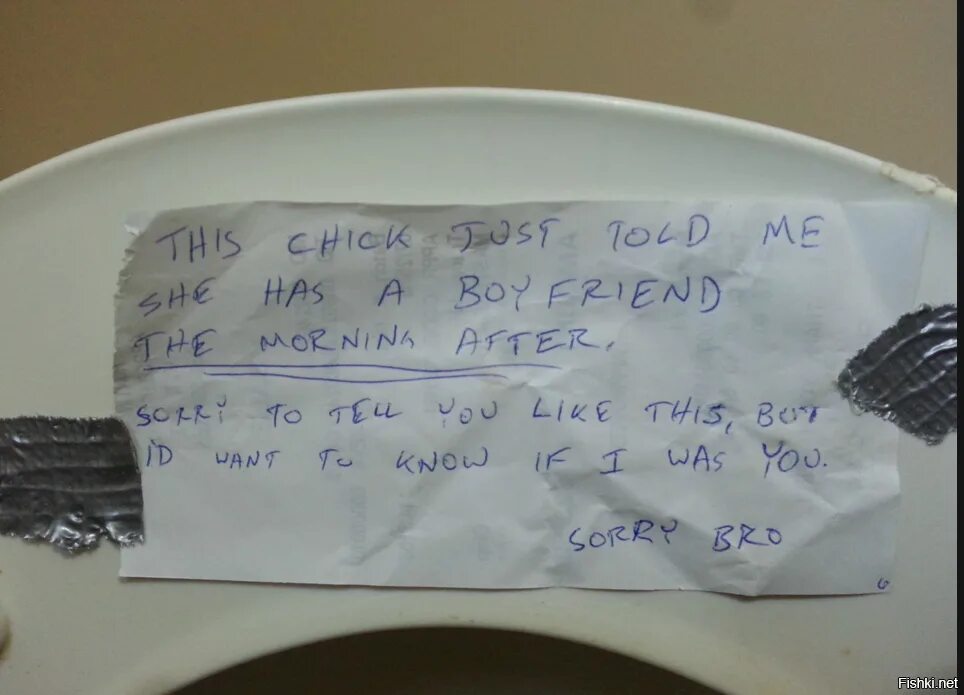 THIS CHICK JUST TOLD ME
SHE HAS A BOYFRIEND
THE MORNING AFTER.
SORRY TO TELL YOU LIKE THIS, BUT
I'D WANT TO KNOW IF I WAS YOU.
SORRY BRO
Fishki.net